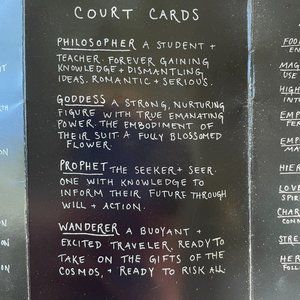 COURT CARDS
PHILOSOPHER A STUDENT +
TEACHER. FOREVER GAINING
KNOWLEDGE + DISMANTLING
IDEAS. ROMANTIC + SERIOUS.
GODDESS A STRONG, NURTURING
FIGURE WITH TRUE EMANATING
POWER. THE EMBODIMENT OF
THEIR SUIT. A FULLY BLOSSOMED
FLOWER.
PROPHET THE SEEKER + SEER.
ONE WITH KNOWLEDGE TO
INFORM THEIR FUTURE THROUGH
WILL + ACTION.
WANDERER A BUOYANT +
EXCITED TRAVELER. READY TO
TAKE ON THE GIFTS OF THE
COSMOS, + READY TO RISK ALL.
FOO
MAG
USE
HIGH
INT
EMP
FER
EMP
MA
HIER
LOV
SPIR
CHAR
CONN
STRE
HER
FOL